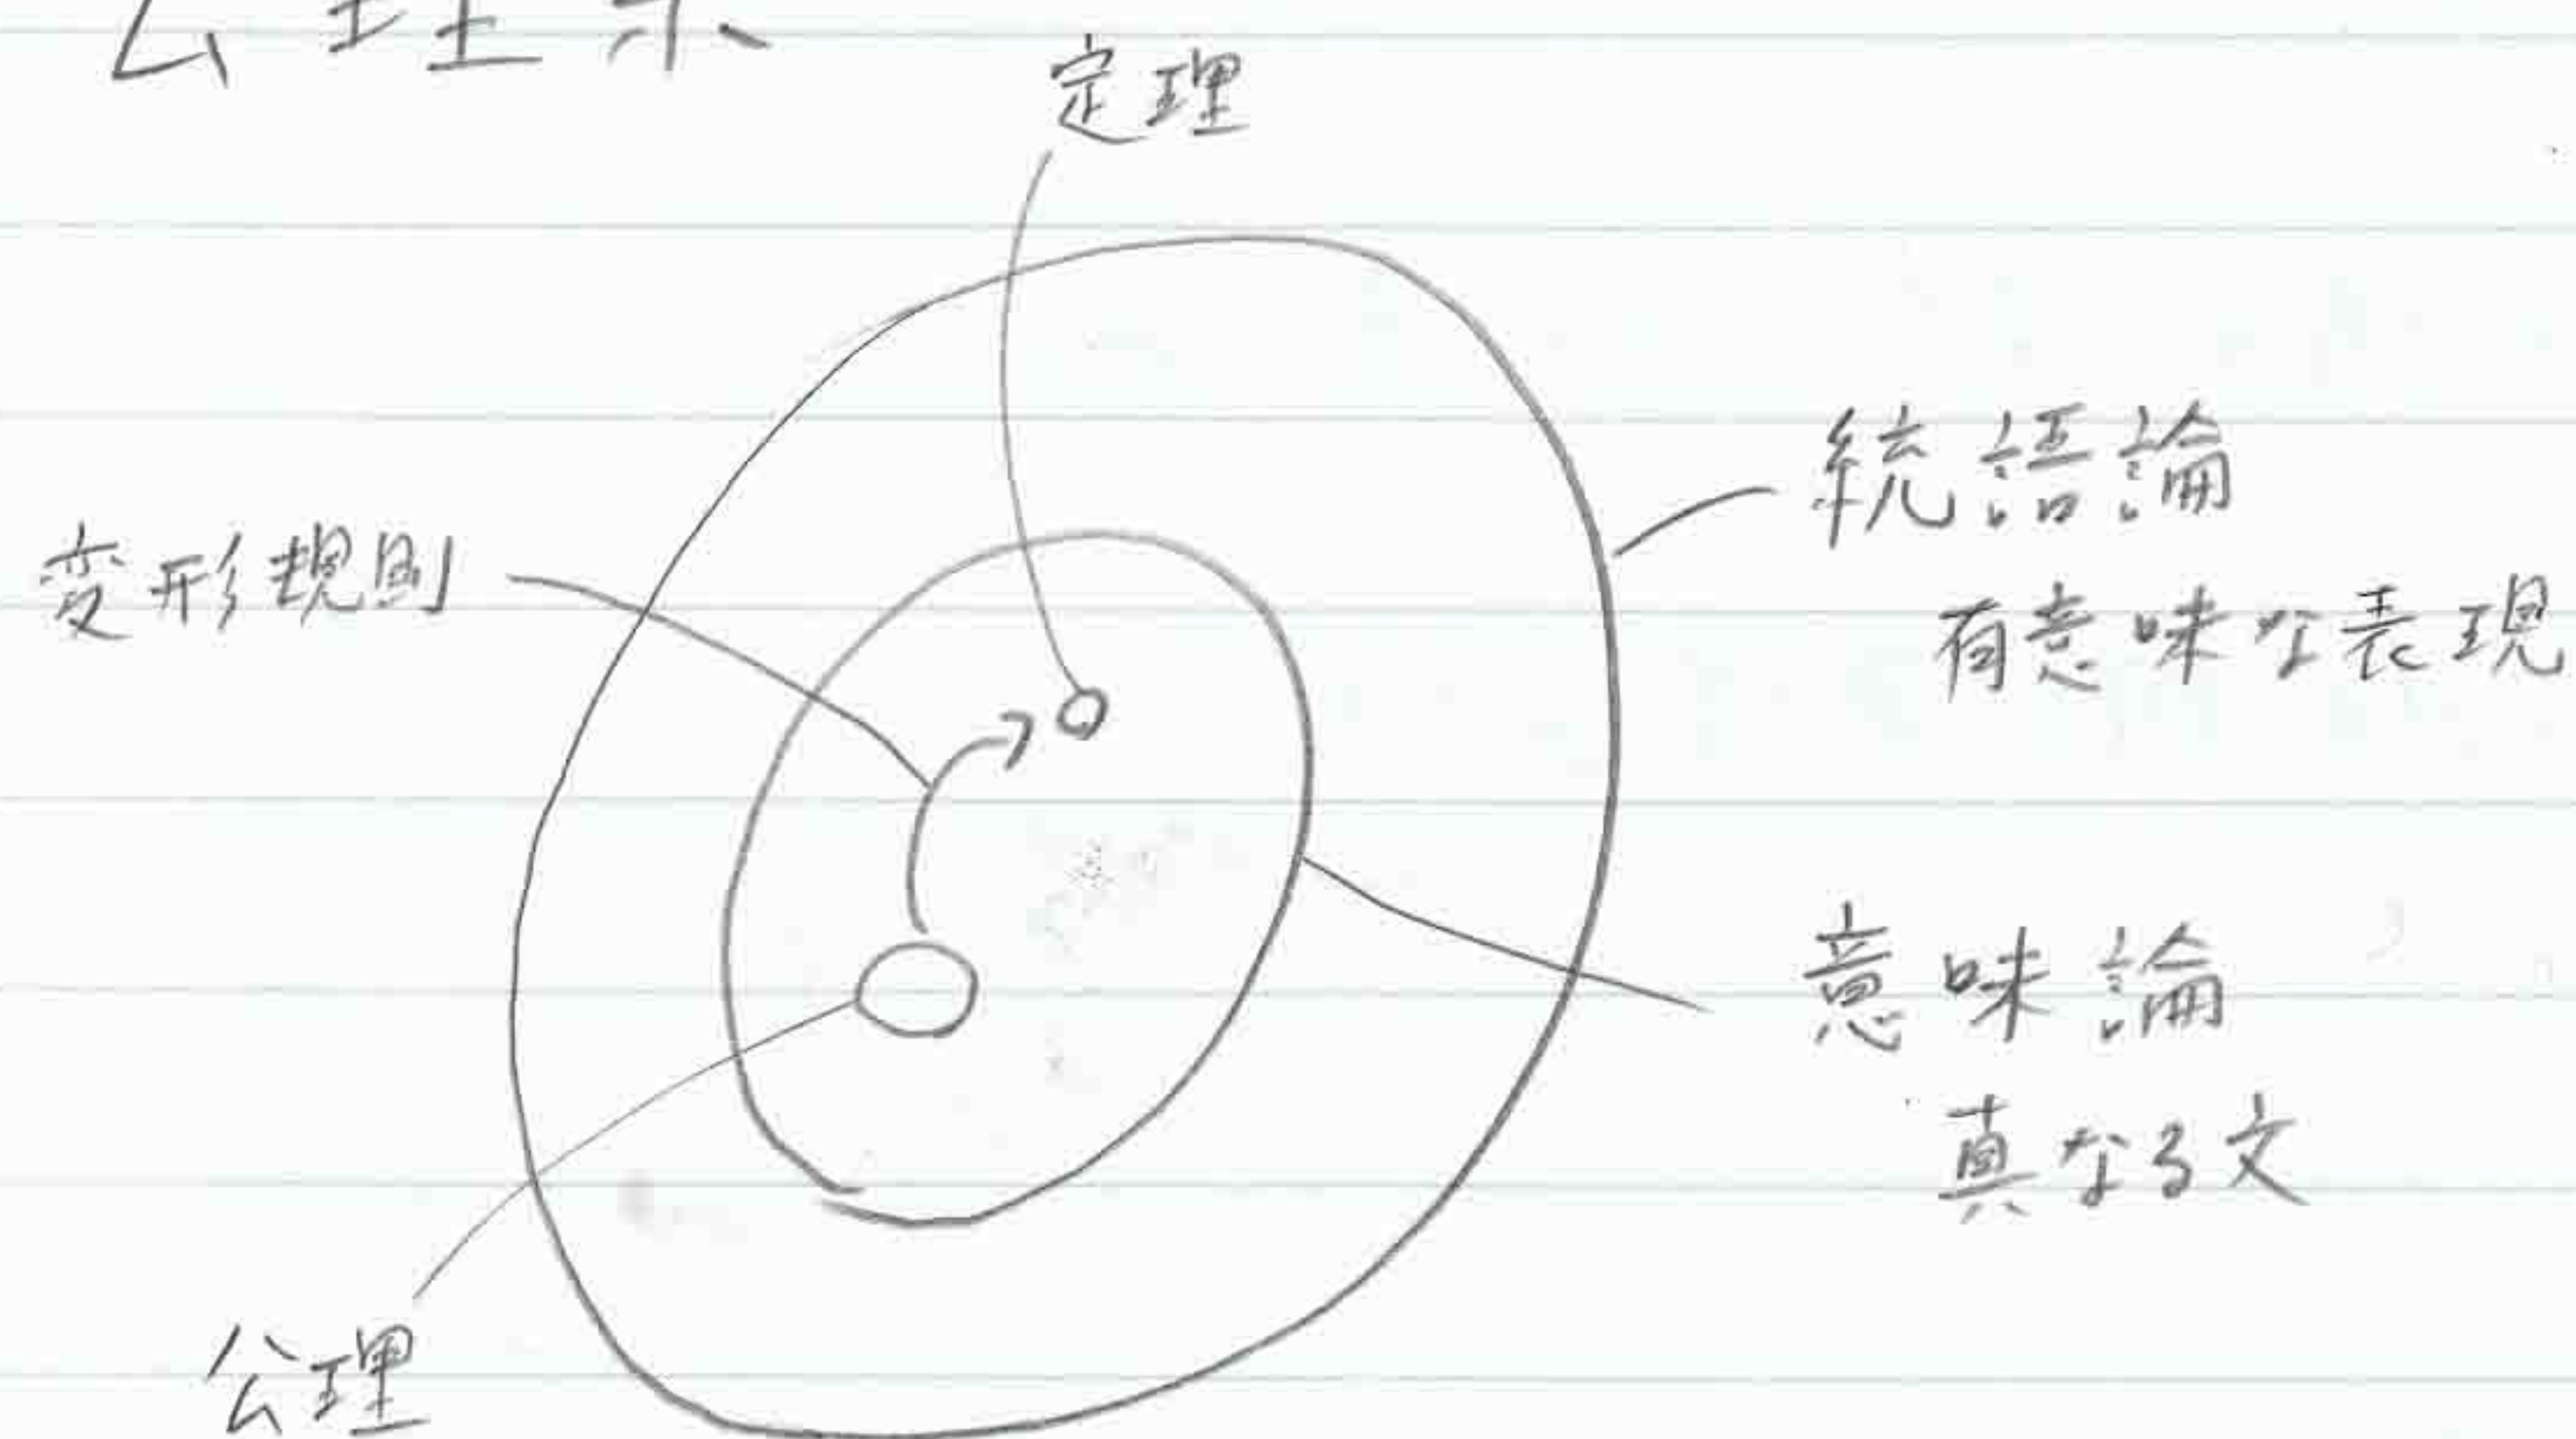 公理系
定理
変形規則
統語論
有意味な表現
意味論
真なる文
公理